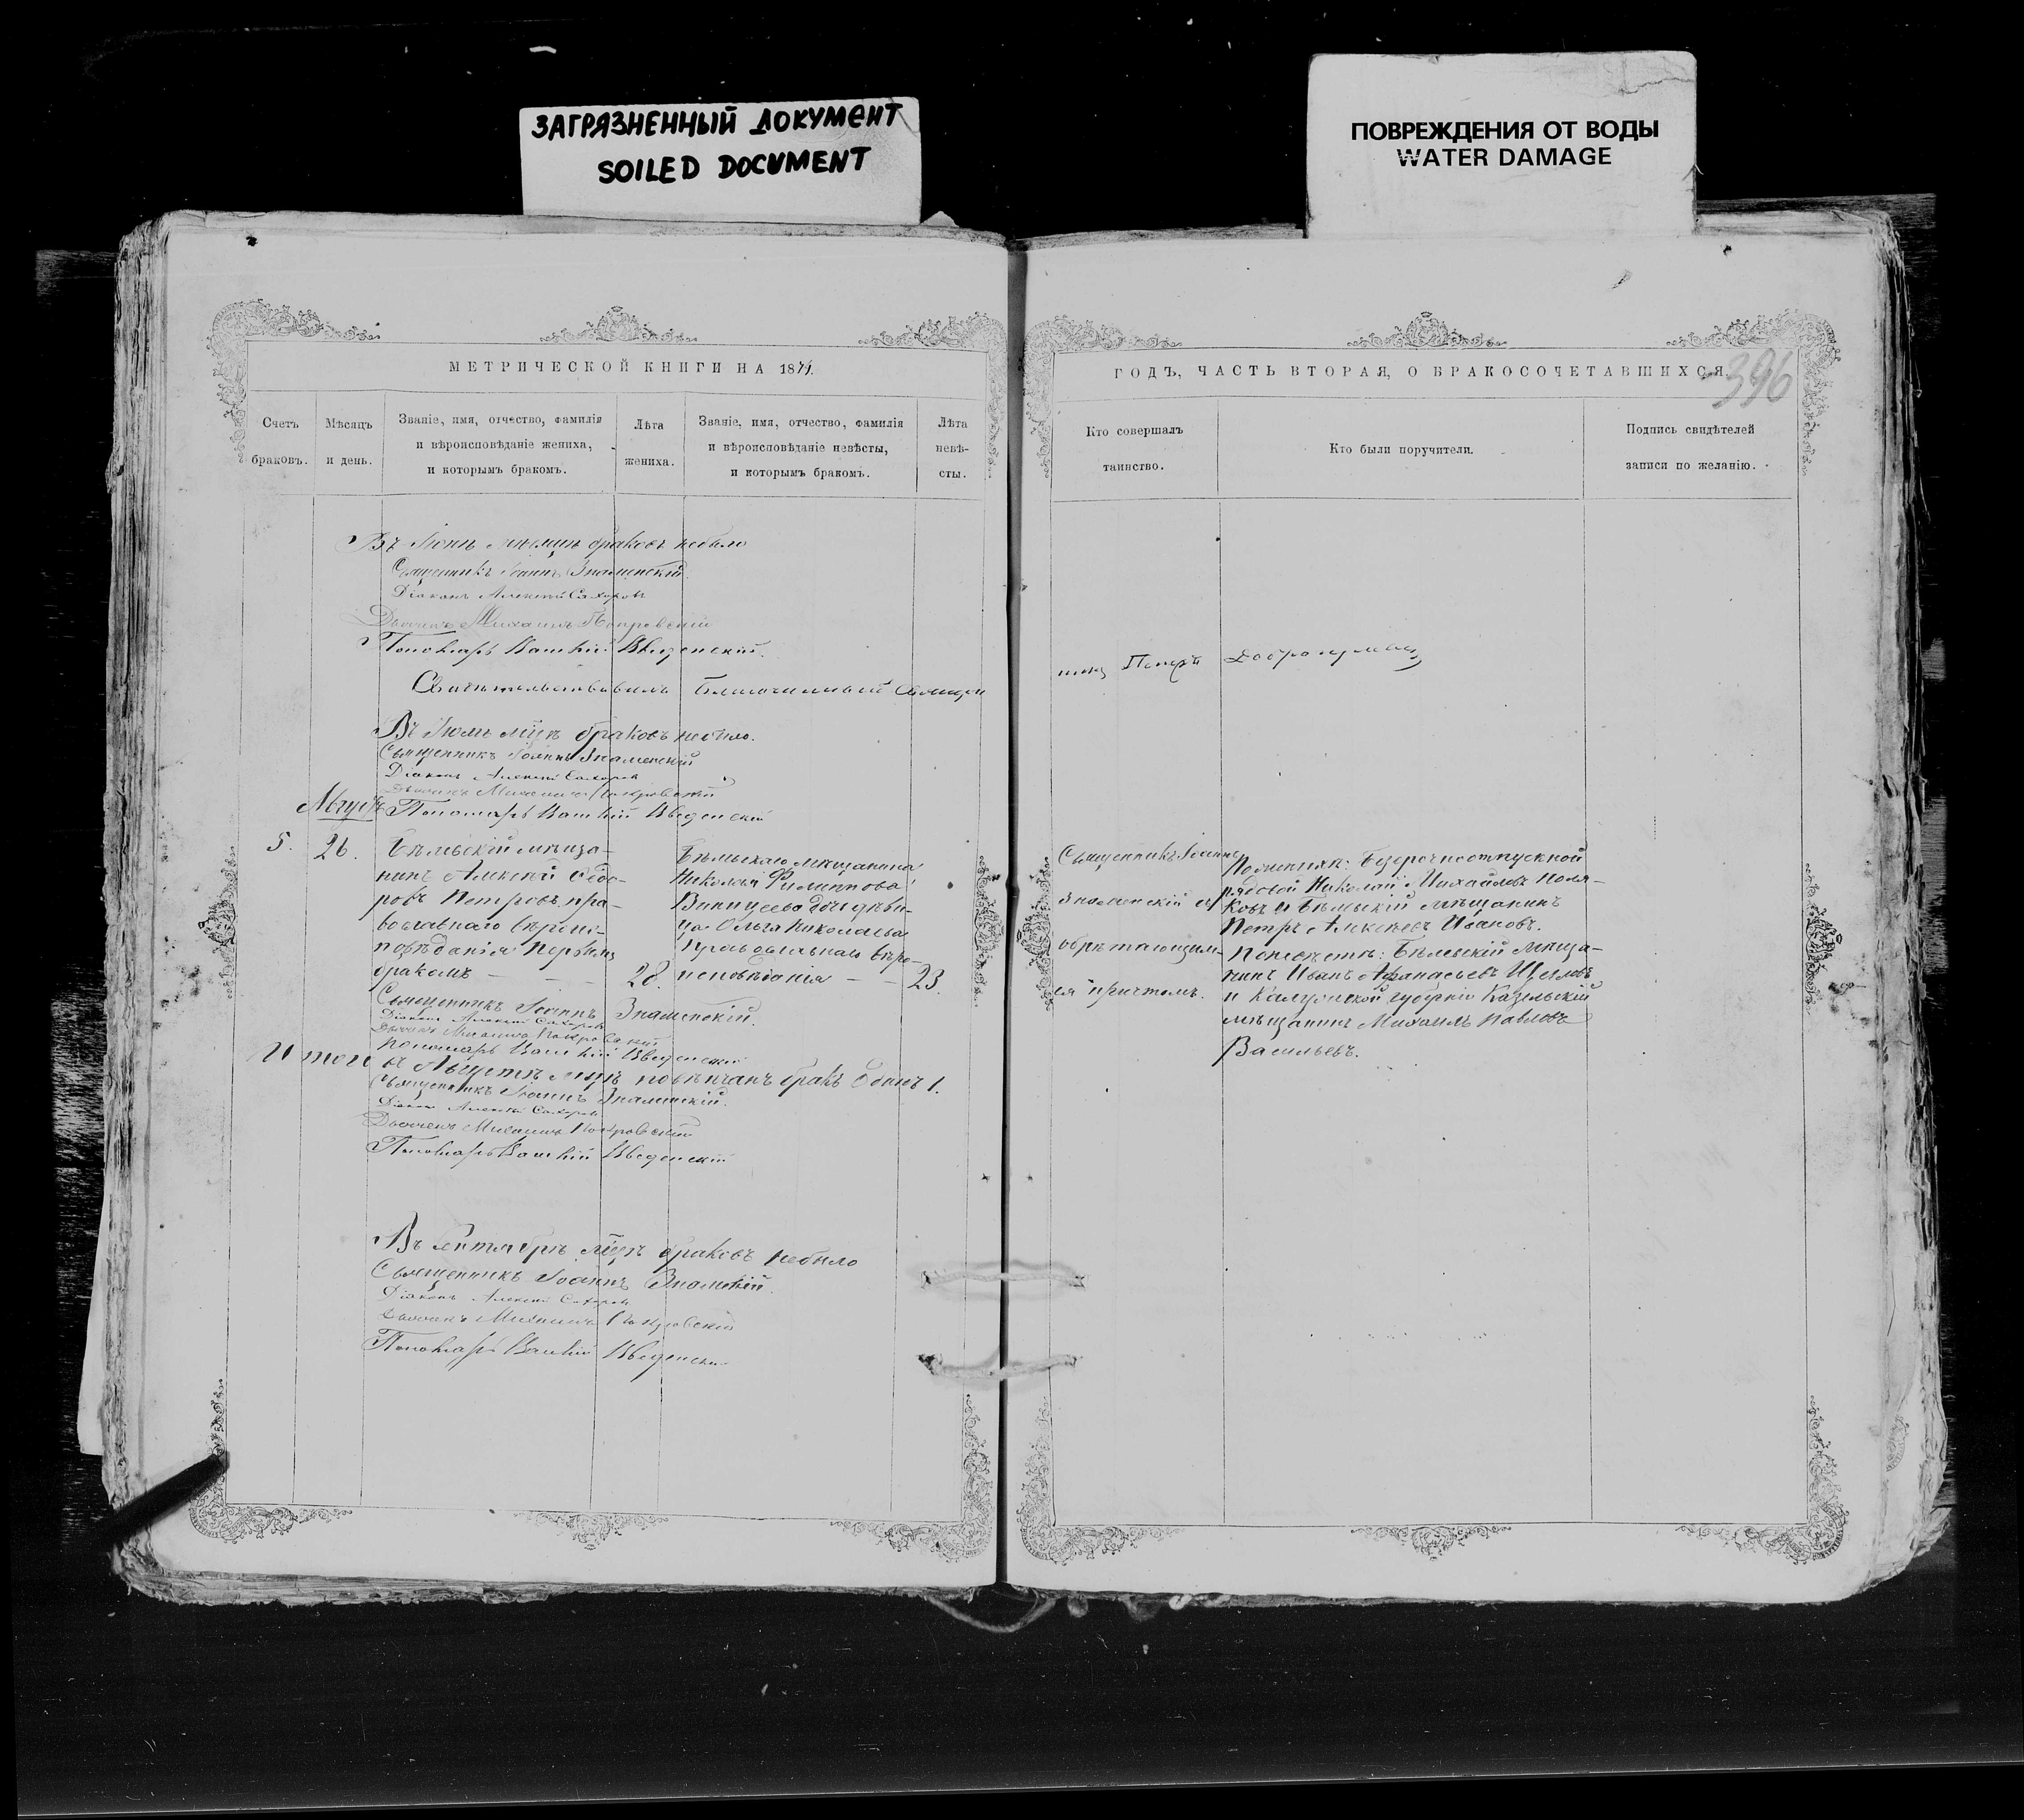 ЗАГРЯЗНЕННЫЙ ДОКУМЕНТ
SOILED DOCUMENT
ПОВРЕЖДЕНИЯ ОТ ВОДЫ
WATER DAMAGE
МЕТРИЧЕСКОЙ КНИГИ НА 1871.
Счетъ
браковъ.
Мѣсяцъ
и день.
Званіе, имя, отчество, фамилія
и вѣроисповѣданіе жениха,
и которымъ бракомъ.
Лѣта
жениха.
Званіе, имя, отчество, фамилія
и вѣроисповѣданіе невѣсты,
и которымъ бракомъ.
Лѣта
невѣ-
сты.
Въ Іюнѣ мѣсяцѣ браковъ небыло
Священникъ Іоаннъ Знаменскій.
Діаконъ Алексѣй Сахаровъ
Дьячекъ Михаилъ Покровскій
Пономарь Введенскій.
Свидѣтельствовалъ Благочинный Священ
Въ Іюлѣ мцѣ браковъ небыло.
Священникъ Іоаннъ Знаменскій
Діаконъ Алексѣй Сахаровъ
Дьячекъ Михаилъ Покровскій
Августъ
Пономарь Введенскій
5.
26.
Бѣльскій мѣща-
нинъ Алексѣй Ѳедо-
ровъ Петровъ, пра-
вославнаго вѣроис-
повѣданія первымъ
бракомъ
28.
Бѣльскаго мѣщанина
Николая Филиппова
дочь дѣви-
ца Ольга Николаева
Православнаго вѣро-
исповѣданія
23.
Священникъ Іоаннъ Знаменскій.
Діаконъ Алексѣй Сахаровъ
Дьячекъ Михаилъ Покровскій
Пономарь Введенскій
Итого въ Августѣ мцѣ повѣнчанъ бракъ Одинъ 1.
Священникъ Іоаннъ Знаменскій.
Діаконъ Алексѣй Сахаровъ
Дьячекъ Михаилъ Покровскій
Пономарь Введенскій
Въ Сентябрѣ мцѣ браковъ небыло
Священникъ Іоаннъ Знаменскій.
Діаконъ Алексѣй Сахаровъ
Дьячекъ Михаилъ Покровскій
Пономарь Введенскій
ГОДЪ, ЧАСТЬ ВТОРАЯ, О БРАКОСОЧЕТАВШИХСЯ.
396
Кто совершалъ
таинство.
Кто были поручители.
Подпись свидѣтелей
записи по желанію.
никъ Петръ
Священникъ Іоаннъ
Знаменскій съ
обрѣтающим-
ся причтомъ.
По женихѣ: Безсрочноотпускной
рядовой Николай Михайловъ Поля-
ковъ и Бѣльскій мѣщанинъ
Петръ Алексѣевъ Ивановъ.
По невѣстѣ: Бѣльскій мѣща-
нинъ Иванъ Афанасьевъ Щегловъ
и Калужской губерніи Казельскій
мѣщанинъ Михаилъ Павловъ
Васильевъ.